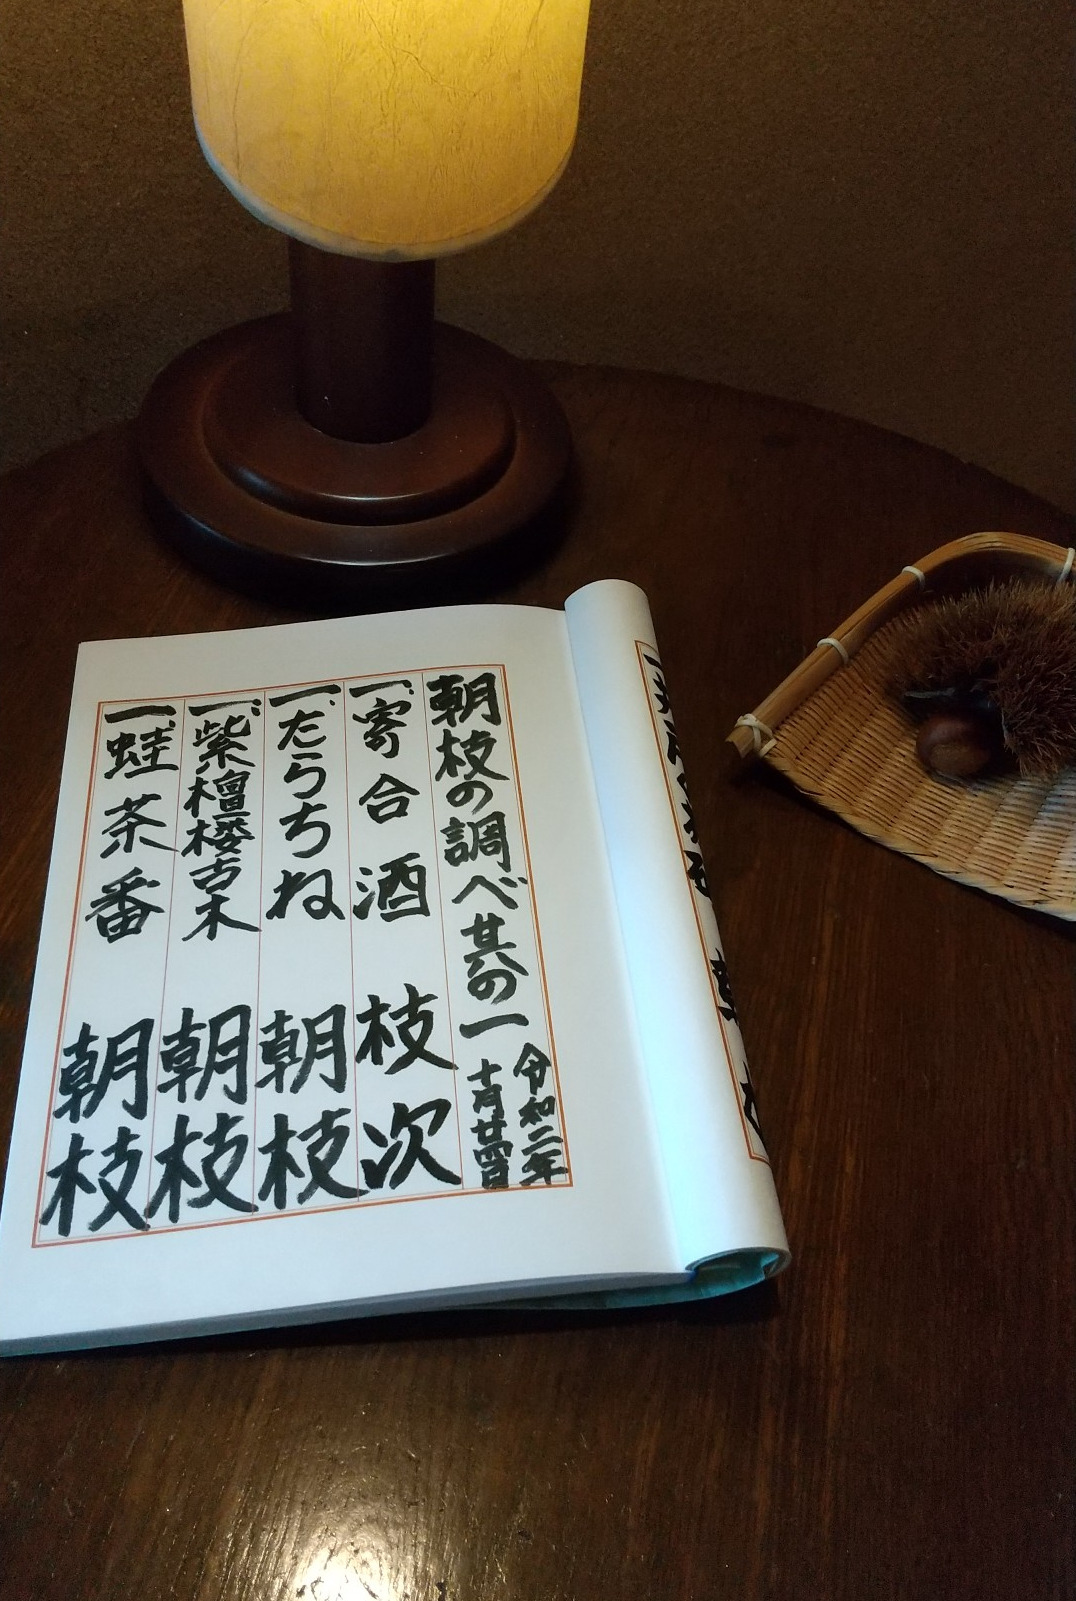 朝枝の調べ其の一
令和二年
十月廿四日
一、寄合酒 枝次
一、だらちね 朝枝
一、紫檀楼古木 朝枝
一、蛙茶番 朝枝